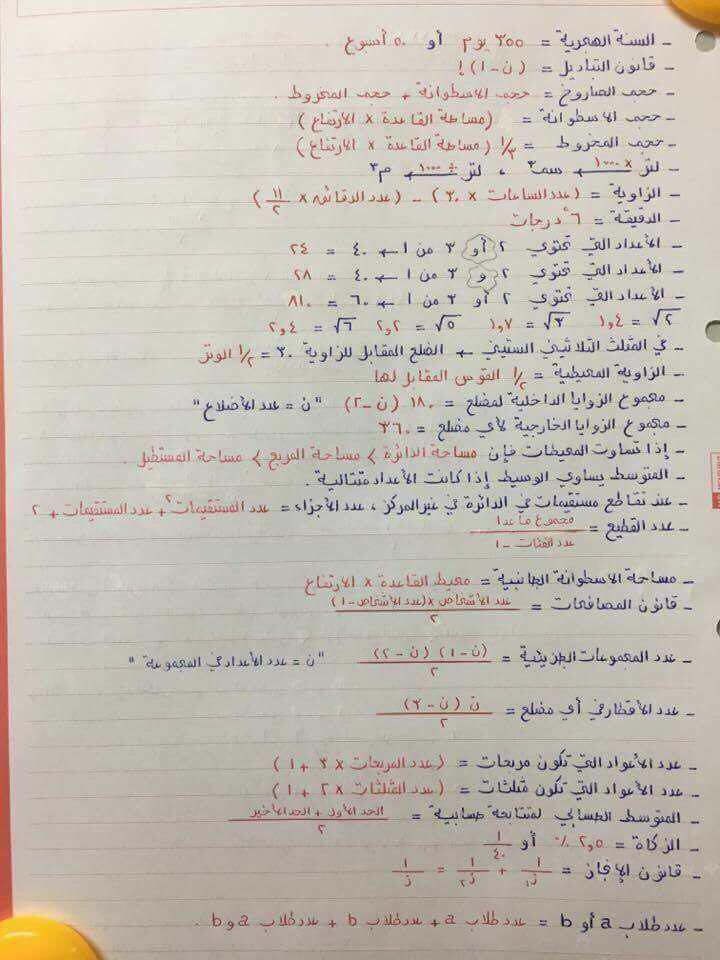 - السنة الهجرية = ٣٥٥ يوم أو ٥٠ أسبوع .
- قانون التباديل = (ن - ١) !
- حجم الصاروخ = حجم الاسطوانة + حجم المخروط .
- حجم الاسطوانة = (مساحة القاعدة × الارتفاع)
- حجم المخروط = ١/٣ (مساحة القاعدة × الارتفاع)
- لتر × ١٠٠٠ ← سم٣ ، لتر ÷ ١٠٠٠ ← م٣
- الزاوية = (عدد الساعات × ٣٠) - (عدد الدقائق × ١١/٢)
- الدقيقة = ٦ درجات
- الأعداد التي تحتوي ٢ أو ٣ من ١ ← ٤٠ = ٢٤
- الأعداد التي تحتوي ٢ و ٣ من ١ ← ٤٠ = ٢٨
- الأعداد التي تحتوي ٢ أو ٣ من ١ ← ٦٠ = ٨١٠
√٢ = ١,٤ √٣ = ١,٧ √٥ = ٢,٢ √٦ = ٢,٤
- في المثلث الثلاثيني الستيني ← الضلع المقابل للزاوية ٣٠ = ١/٢ الوتر
- الزاوية المحيطية = ١/٢ القوس المقابل لها
- مجموع الزوايا الداخلية لمضلع = ١٨٠ (ن - ٢) "ن = عدد الأضلاع"
- مجموع الزوايا الخارجية لأي مضلع = ٣٦٠
- إذا تساوت المحيطات فإن مساحة الدائرة > مساحة المربع > مساحة المستطيل .
- المتوسط يساوي الوسيط إذا كانت الأعداد متتالية .
- عند تقاطع مستقيمات في الدائرة في غير المركز ، عدد الأجزاء = عدد المستقيمات٢ + عدد المستقيمات + ٢
- عدد القطيع = مجموع ماعدا / عدد الفئات - ١
- مساحة الاسطوانة الجانبية = محيط القاعدة × الارتفاع
- قانون المصافحات = عدد الأشخاص × (عدد الأشخاص - ١) / ٢
- عدد المجموعات الجزيئية = (ن - ١) (ن - ٢) / ٢ "ن = عدد الأعداد في المجموعة"
- عدد الأقطار في أي مضلع = ن (ن - ٣) / ٢
- عدد الأعواد التي تكون مربعات = (عدد المربعات × ٣ + ١)
- عدد الأعواد التي تكون مثلثات = (عدد المثلثات × ٢ + ١)
- المتوسط الحسابي لمتتابعة حسابية = الحد الأول + الحد الأخير / ٢
- الزكاة = ٢,٥ ٪ أو ١/٤٠
- قانون الإنجاز = ١/ز١ + ١/ز٢ = ١/ز
- عدد طلاب a أو b = عدد طلاب a + عدد طلاب b + عدد طلاب a و b .